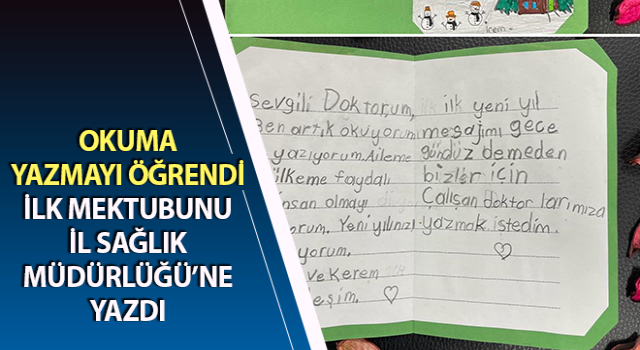 OKUMA
YAZMAYI ÖĞRENDİ
İLK MEKTUBUNU
İL SAĞLIK
MÜDÜRLÜĞÜ’NE
YAZDI
İrem
Sevgili Doktorum,
Ben artık okuyorum
yazıyorum. Aileme
ülkeme faydalı
insan olmayı
orum. Yeni yılınızı
yorum.
ve Kerem
eşim.
ilk yeni yıl
mesajımı gece
gündüz demeden
bizler için
Çalışan doktorlarımıza
yazmak istedim.